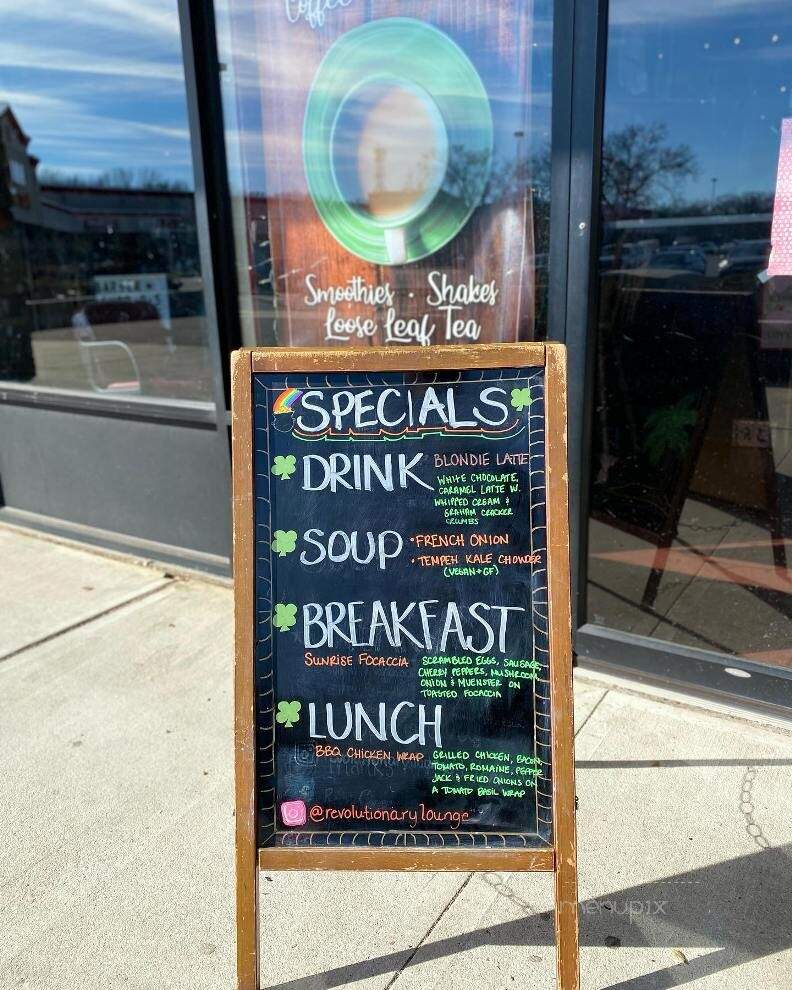 Coffee
Smoothies · Shakes
Loose Leaf Tea
SPECIALS
DRINK
BLONDIE LATTE
WHITE CHOCOLATE,
CARAMEL LATTE W.
WHIPPED CREAM &
GRAHAM CRACKER
CRUMBS
SOUP
• FRENCH ONION
• TEMPEH KALE CHOWDER
(VEGAN + GF)
BREAKFAST
SUNRISE FOCACCIA
SCRAMBLED EGGS, SAUSAGE,
CHERRY PEPPERS, MUSHROOM,
ONION & MUENSTER ON
TOASTED FOCACCIA
LUNCH
BBQ CHICKEN WRAP
GRILLED CHICKEN, BACON,
TOMATO, ROMAINE, PEPPER
JACK & FRIED ONIONS ON
A TOMATO BASIL WRAP
@revolutionarylounge
menupix